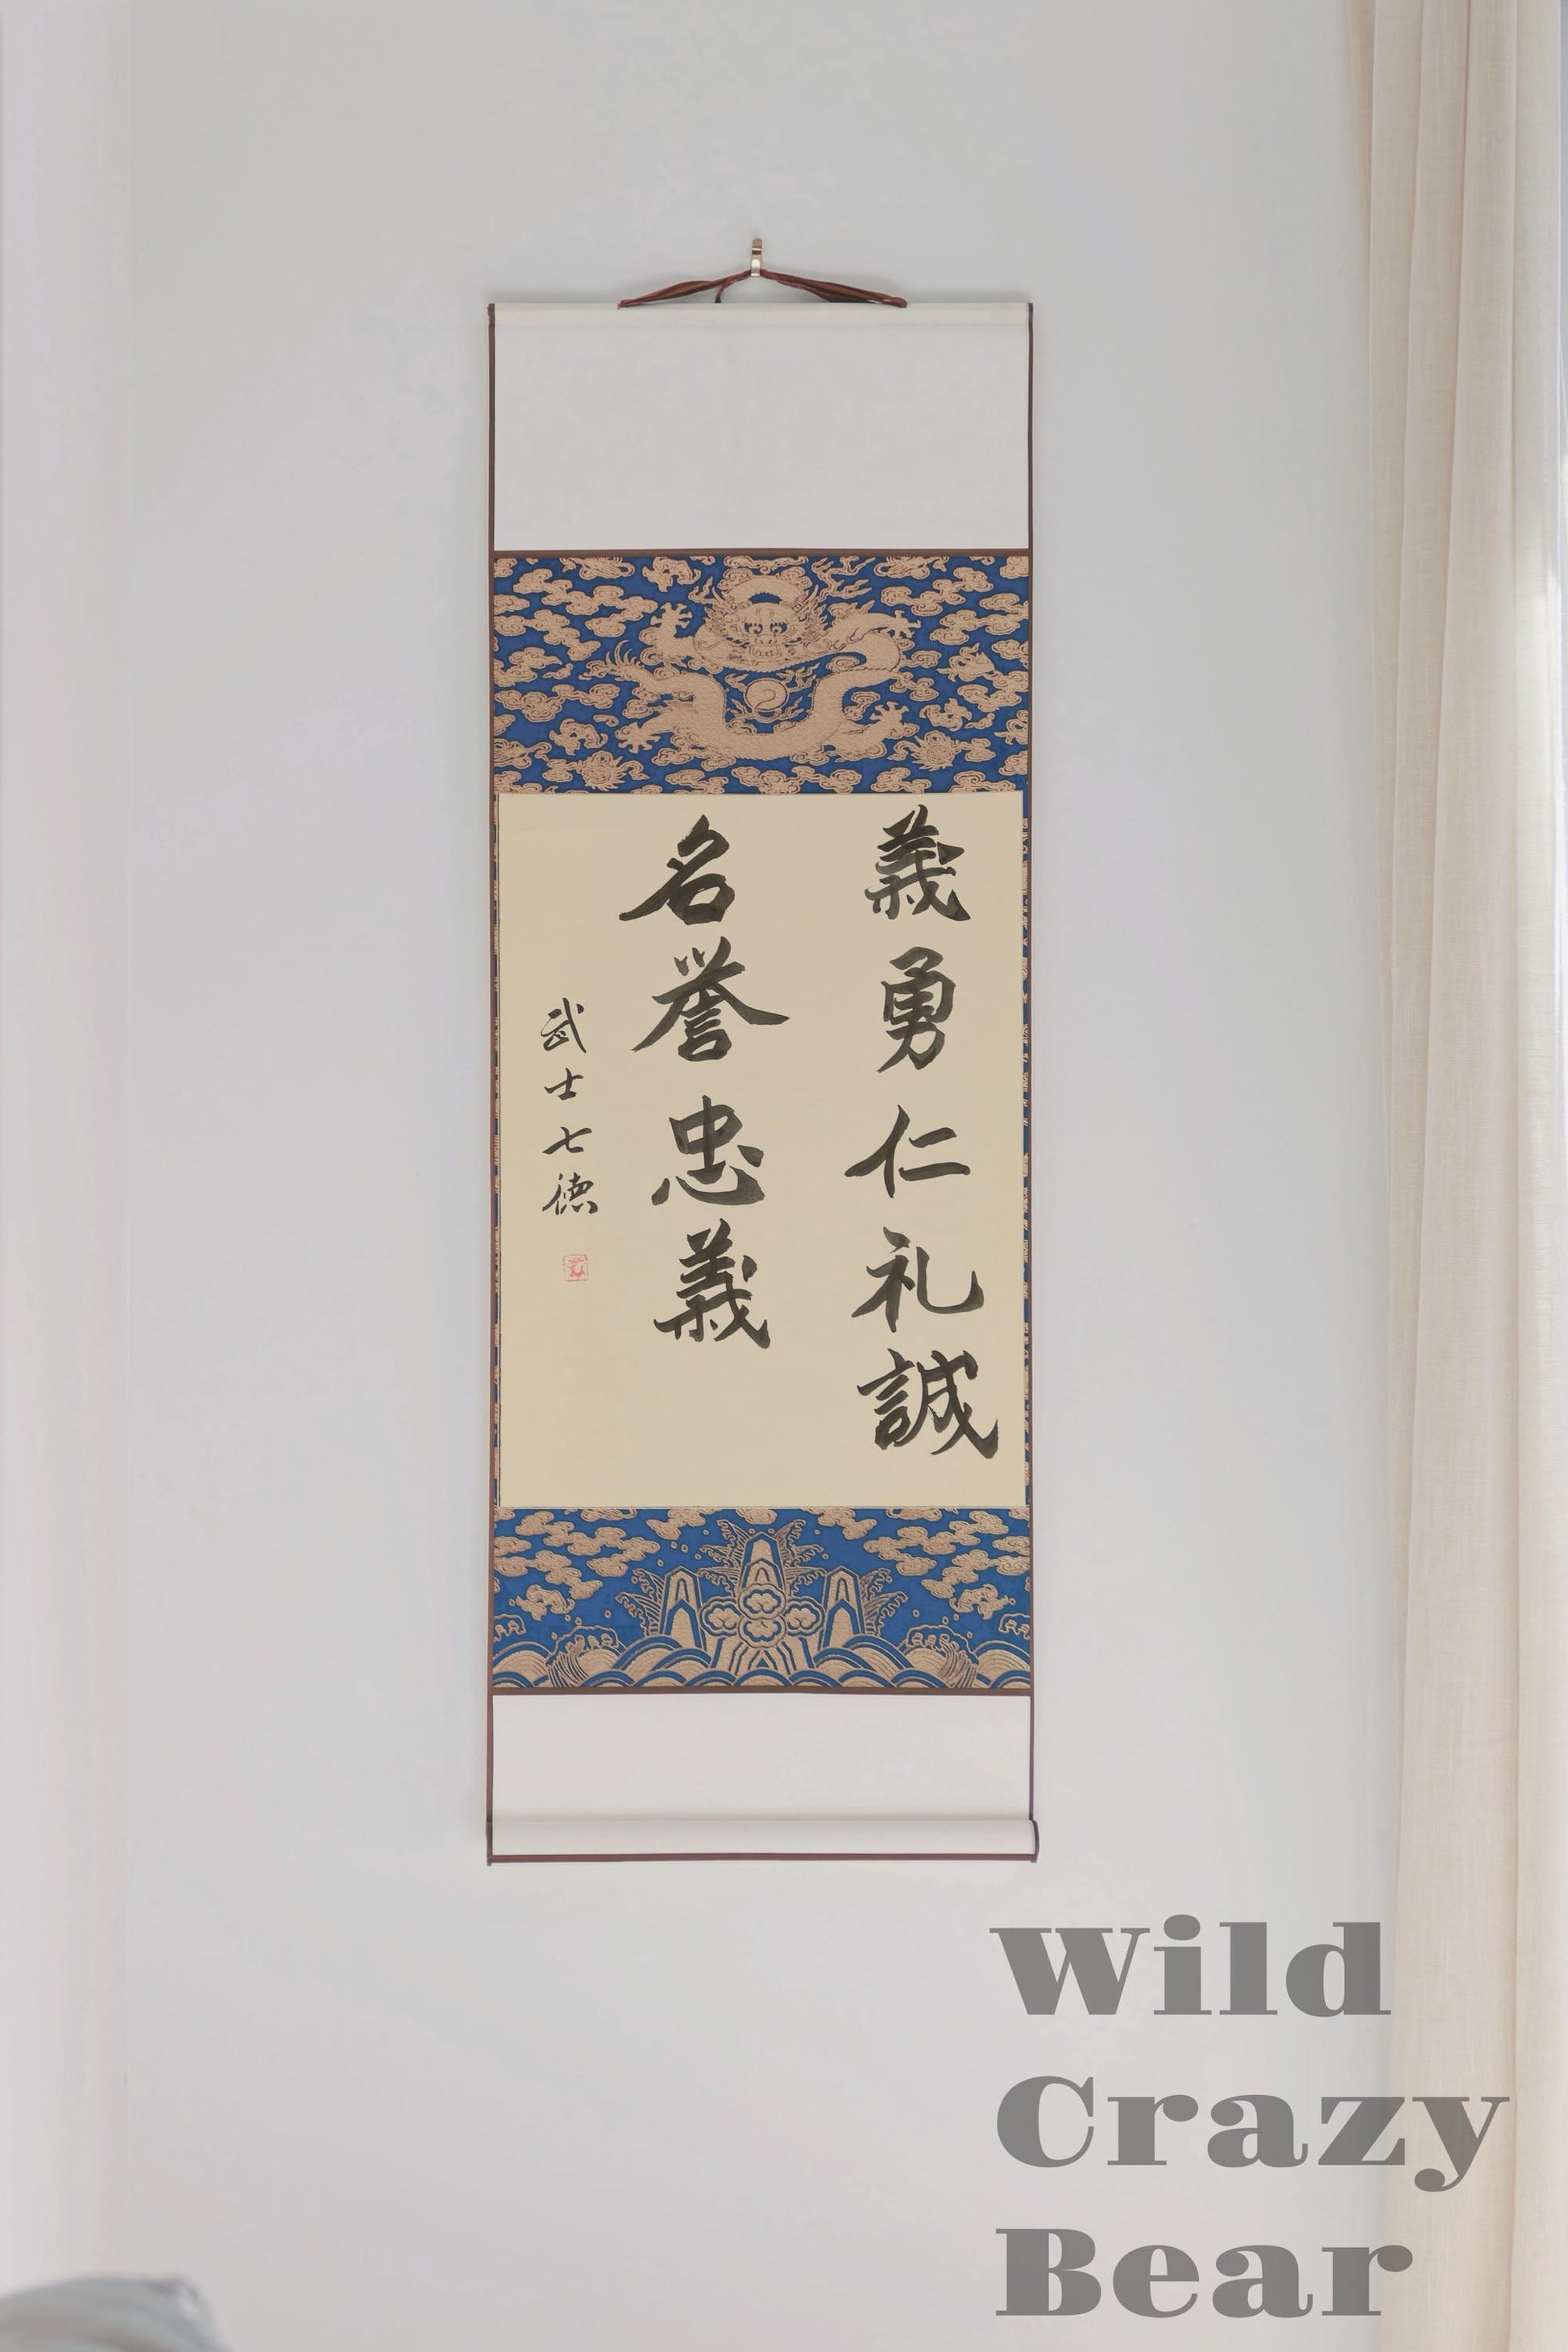 義勇仁礼誠
名誉忠義
武士七徳
Wild
Crazy
Bear